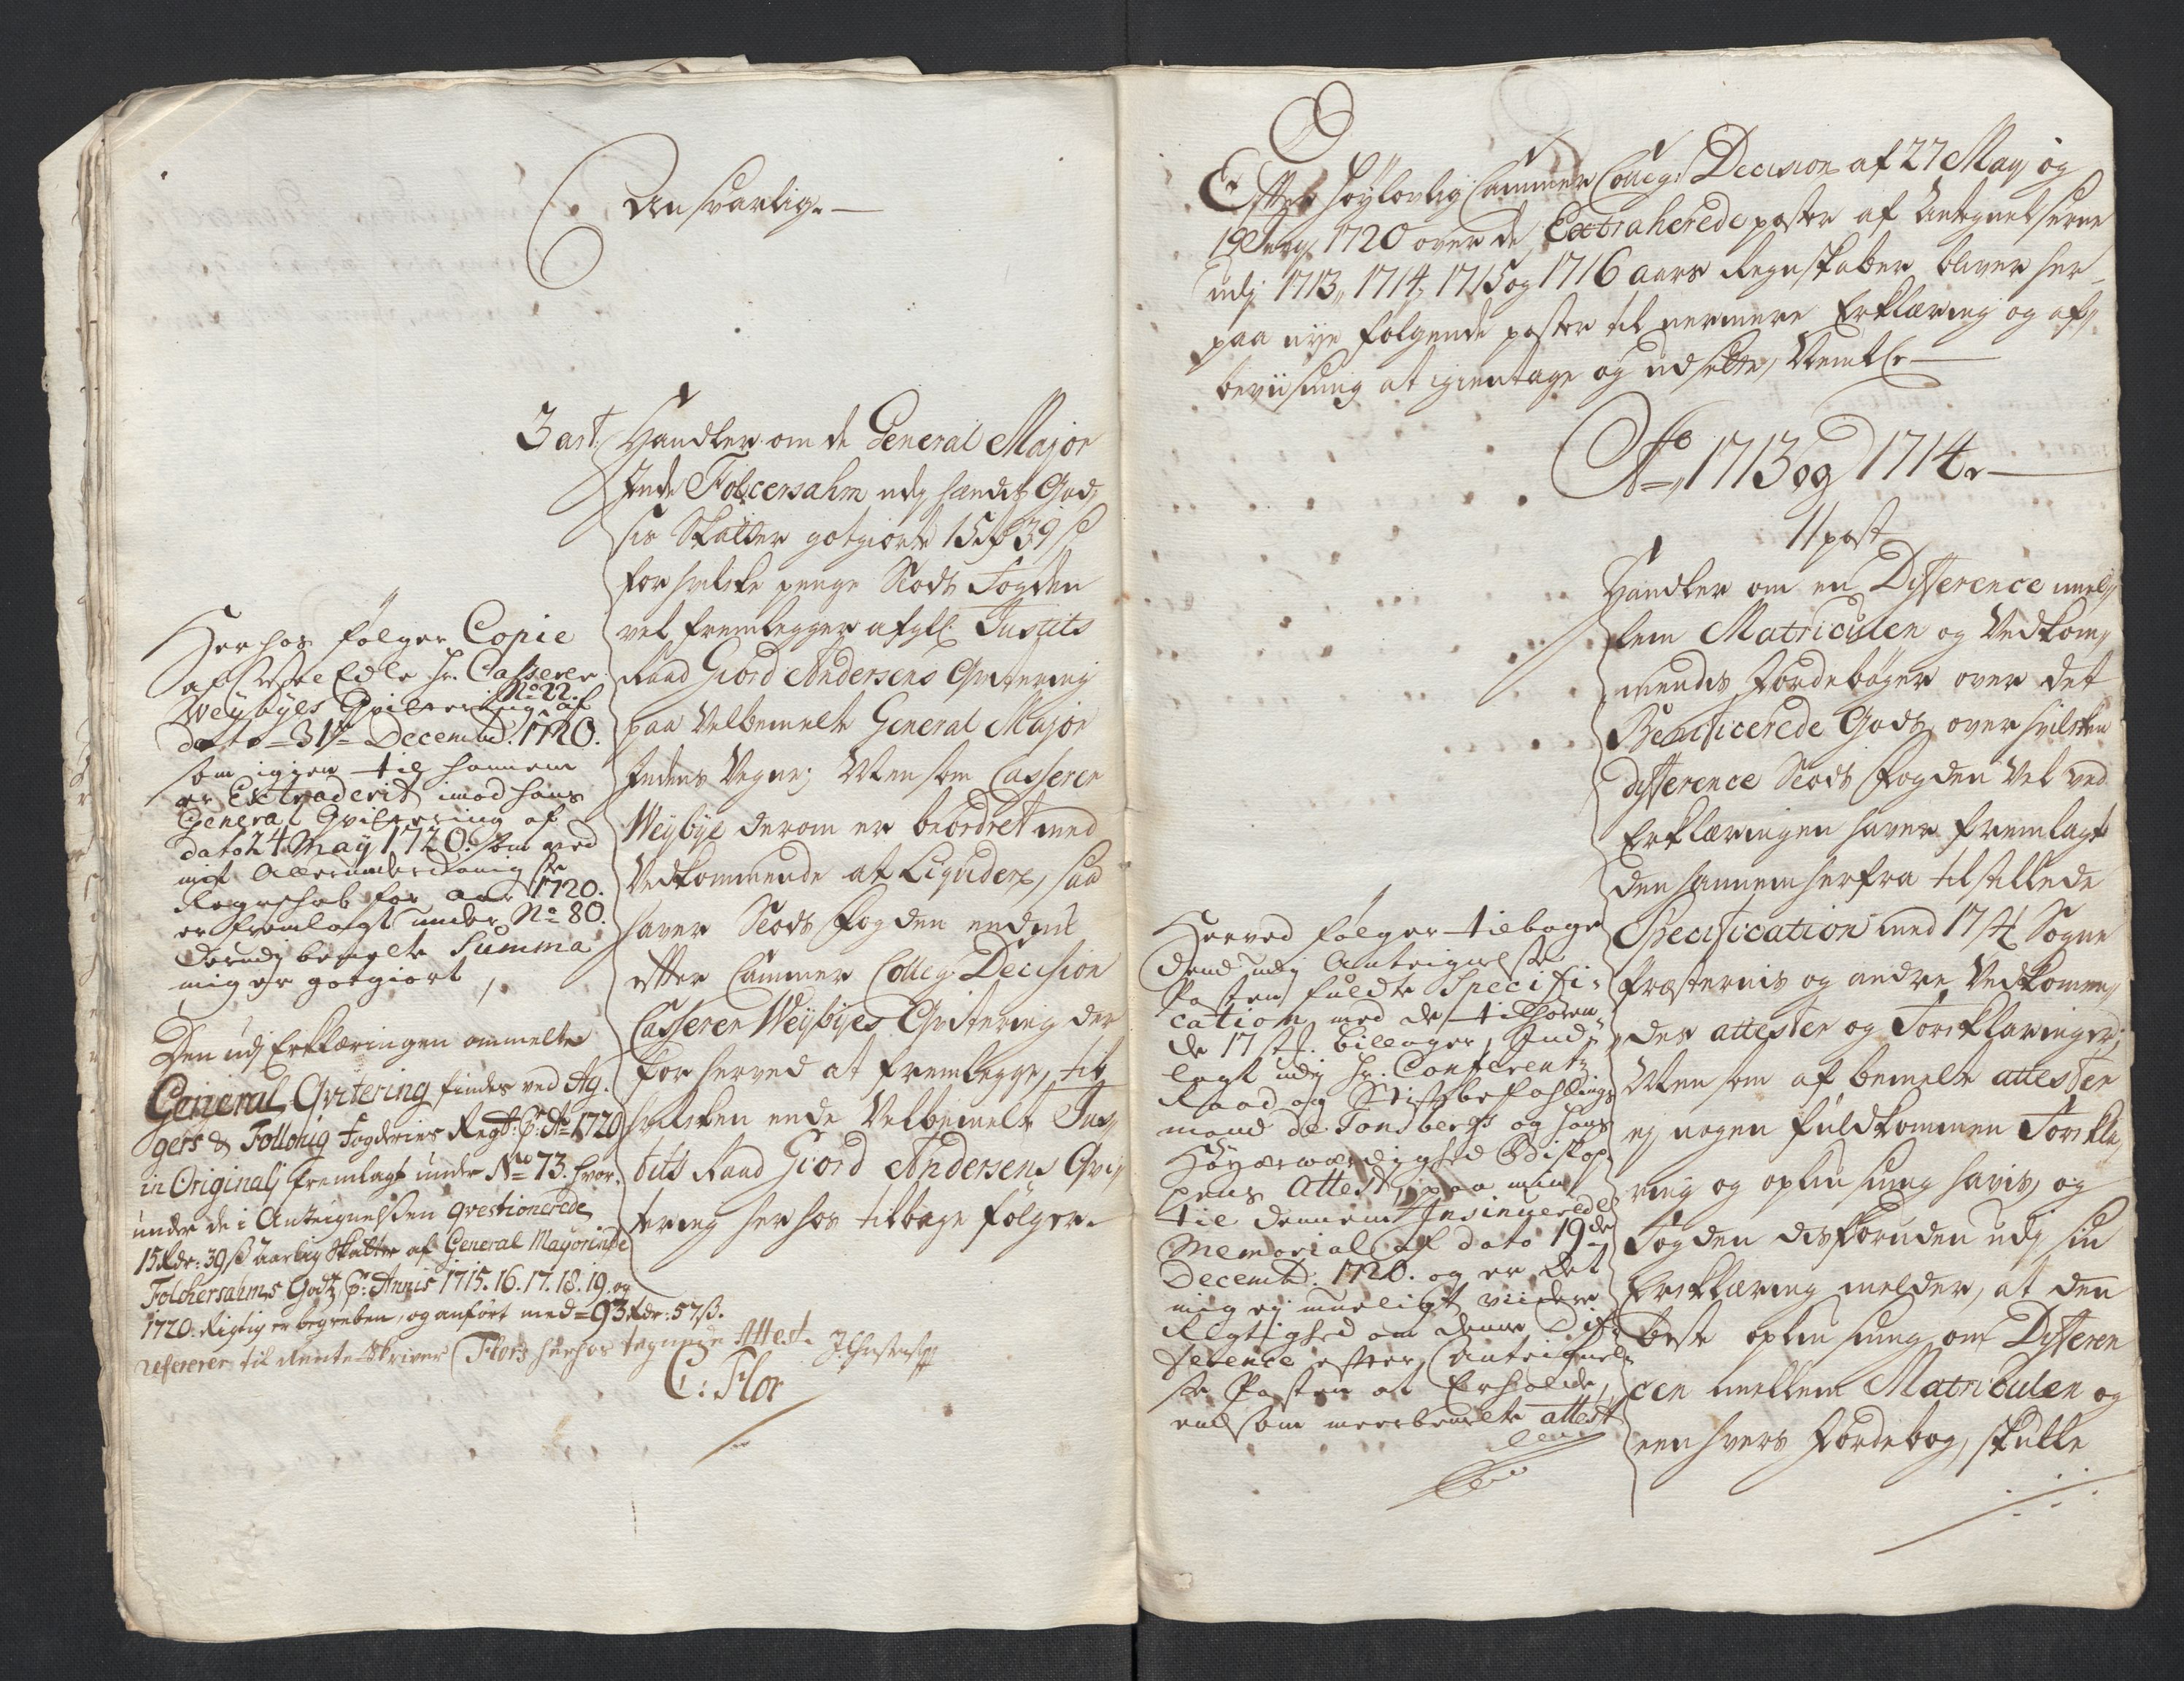 Ansvarlig.
3 art. Handler om de General Major
Inde Folcersahm udj hendes God-
sis Skatter gotgiorte 15 rd 39 s
for hvilke penge Stods Fogden
vel fremlegger afgl. Justits
Raad Giord Andersens Qvitering
paa Velbemelte General Major
Indens Vegne; Men som Casserer
Weybye derom er beordret med
Vedkommende at Liqvidere, saa
haver Stods Fogden endnu
efter Cammer Colleg: Decision
Casserer Weybyes Qvitering der
for herved at fremlegge, til
hvilken ende Velbemelte Jus-
tits Raad Giord Andersens Qvi-
tering herhos tilbage følger.
Herhos følger Copie
af Welædle Hr. Casserer
Weybyes Qvittering No 22. af
dato 31te Decembr. 1720.
som igien til hannem
er Extraderit imod hans
General Qvittering af
dato 24 May 1720. som ved
mit Allerunderdanigste
Regnschab for aar 1720.
er fremlagt under No 80.
derudj bemelte Summa
mig er gotgiort,
Den udj Erklæringen ommelte
General Qvitering findes ved Ag-
gers & Follougs Fogderies Regst: pr: Ao 1720
in Originalj fremlagt under No 73. hvor-
under de i Anteignelsen qvestionerede
15 Rdr: 39 s aarlig Skatter af General Mayorinde
Folchersahms Godtz pr: Annis 1715. 16. 17. 18. 19. og
1720. Rigtig er begreben, og anført med = 93 Rdr: 57 s.
refererer til Rente-Skriver Flors herhos tegnede Attest.
C: Flor
Efter Høylovlig Cammer Colleg: Decision af 27 May og
1720 over de Extraherede poster af Antegnelserne
udj 1713, 1714, 1715 og 1716 aars Regnskaber bliver her-
paa nye følgende poster til nermere Erklæring og af-
beviisning at igientage og udsette, Nembl.
Ao 1713 og 1714.
11 post
Handler om en Difference mel-
lem Matriculen og Vedkom-
mendes Jordebøger over det
Beneficerede Gods, over hvilken
difference Stods Fogden vel ved
Erklæringen haver fremlagt
den hannem herfra tilstillede
Specification med 17 st. Sogne
Præsternis og andre Vedkommen-
des attester og Forklaringer;
Men som af bemelte attester
ej nogen fuldkommen Forkla-
ring og oplysning haves, og
Fogden desforuden udj sin
Erklæring melder, at den
beste oplysning om Differen
cen mellem Matriculen og
een hvers Jordebog, skulle
Herved følger tilbage
dend udj Anteignelse
Posten fuldte Specifi-
cation med de tilhøren-
de 17 st. billager, Ind-
lagt udj Hr. Conferentz
Raad og Stiftbefahlings
mand de Tonsbergs og hans
Høyærværdighed Biskop-
pens Attest, paa min
til dennem Insinuerede
Memorial af dato 19de
Decembr: 1720. og er det
mig ej mueligt viidere
Rigtighed om denne Dif-
ference efter Anteignel-
se Posten at Erholde,
end som meerbemelte attest